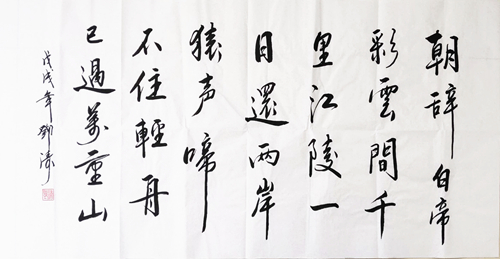 朝辞白帝
彩雲間千
里江陵一
日還两岸
猿声啼
不住輕舟
已過萬重山
戊戌年鄧涛